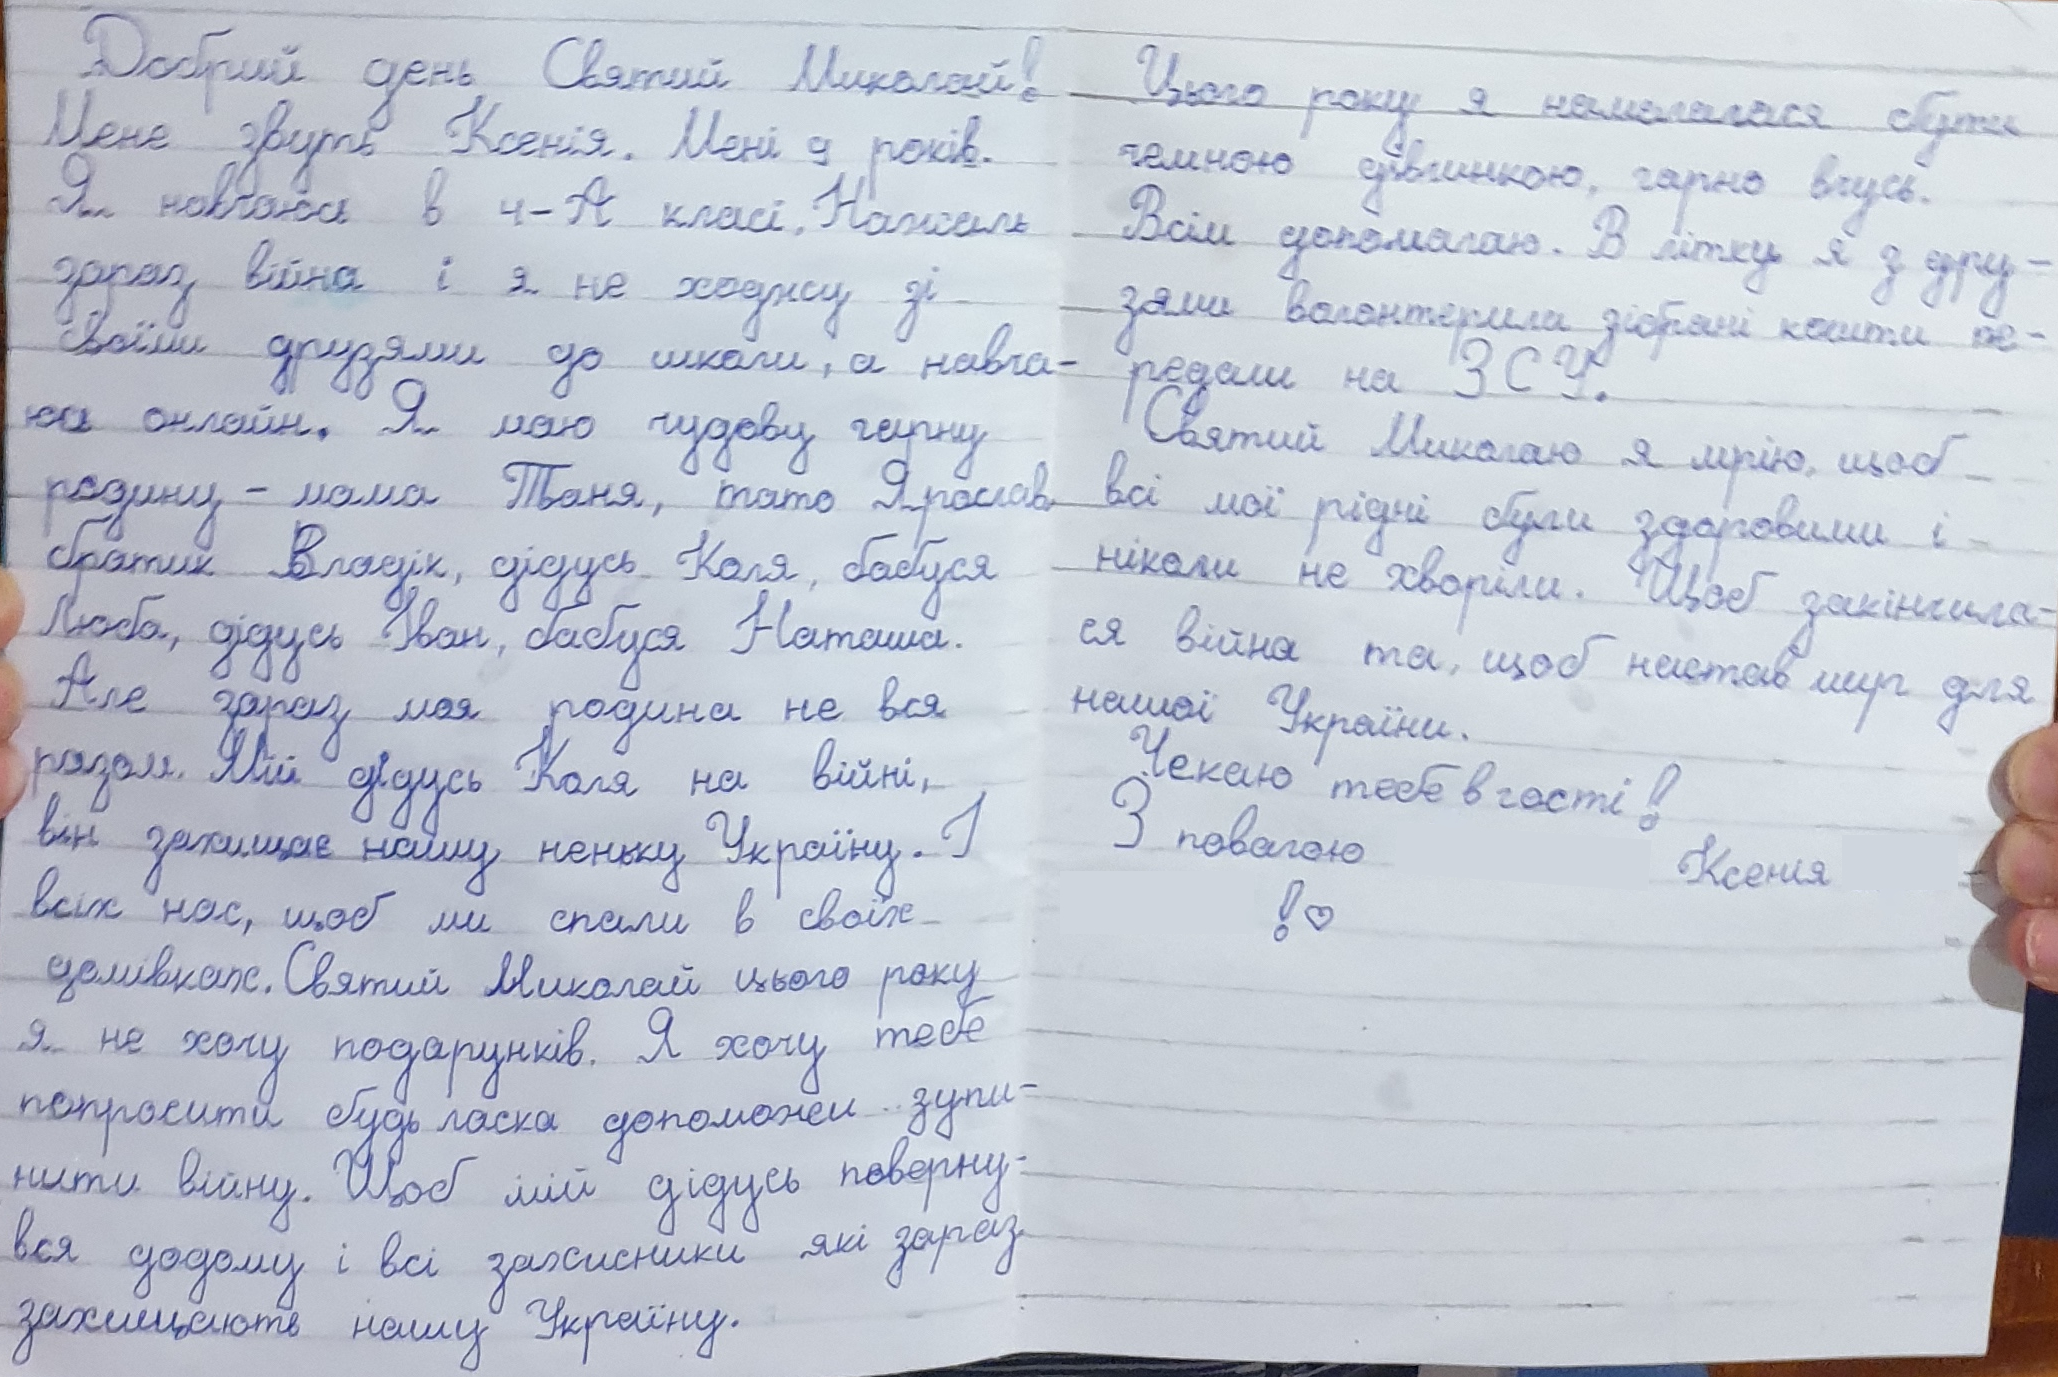 Добрий день Святий Миколай!
Мене звуть Ксенія. Мені 9 років.
Я навчаюся в 4-А класі. Нажаль
зараз війна і я не ходжу зі
своїми друзями до школи, а навча-
юся онлайн. Я маю чудову гарну
родину - мама Таня, тато Ярослав
братик Владік, дідусь Коля, бабуся
Люба, дідусь Іван, бабуся Наташа.
Але зараз моя родина не вся
разом. Мій дідусь Коля на війні,
він захищає нашу неньку Україну. І
всіх нас, щоб ми спали в своїх
домівках. Святий Миколай цього року
я не хочу подарунків. Я хочу тебе
попросити будь ласка допоможи зупи-
нити війну. Щоб мій дідусь поверну-
вся додому і всі захисники які зараз
захищають нашу Україну.
Цього року я намагалася бути
чемною дівчинкою, гарно вчусь.
Всім допомагаю. В літку я з дру-
зями волонтерила зібрані кошти пе-
редали на ЗСУ.
Святий Миколаю я мрію, щоб
всі мої рідні були здоровими і
ніколи не хворіли. Щоб закінчила-
ся війна та, щоб настав мир для
нашої України.
Чекаю тебе в гості!
З повагою Ксенія
!♡